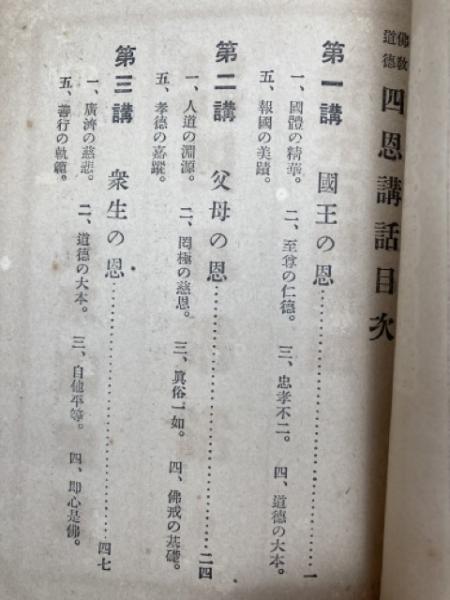 佛教道德 四恩講話目次
第一講 國王の恩……………………一
一、國體の精華。 二、至尊の仁德。 三、忠孝不二。 四、道德の大本。
五、報國の美蹟。
第二講 父母の恩……………………二四
一、人道の淵源。 二、罔極の慈恩。 三、眞俗一如。 四、佛戒の基礎。
五、孝德の嘉蹤。
第三講 衆生の恩……………………四七
一、廣濟の慈悲。 二、道德の大本。 三、自他平等。 四、卽心是佛。
五、善行の軌範。